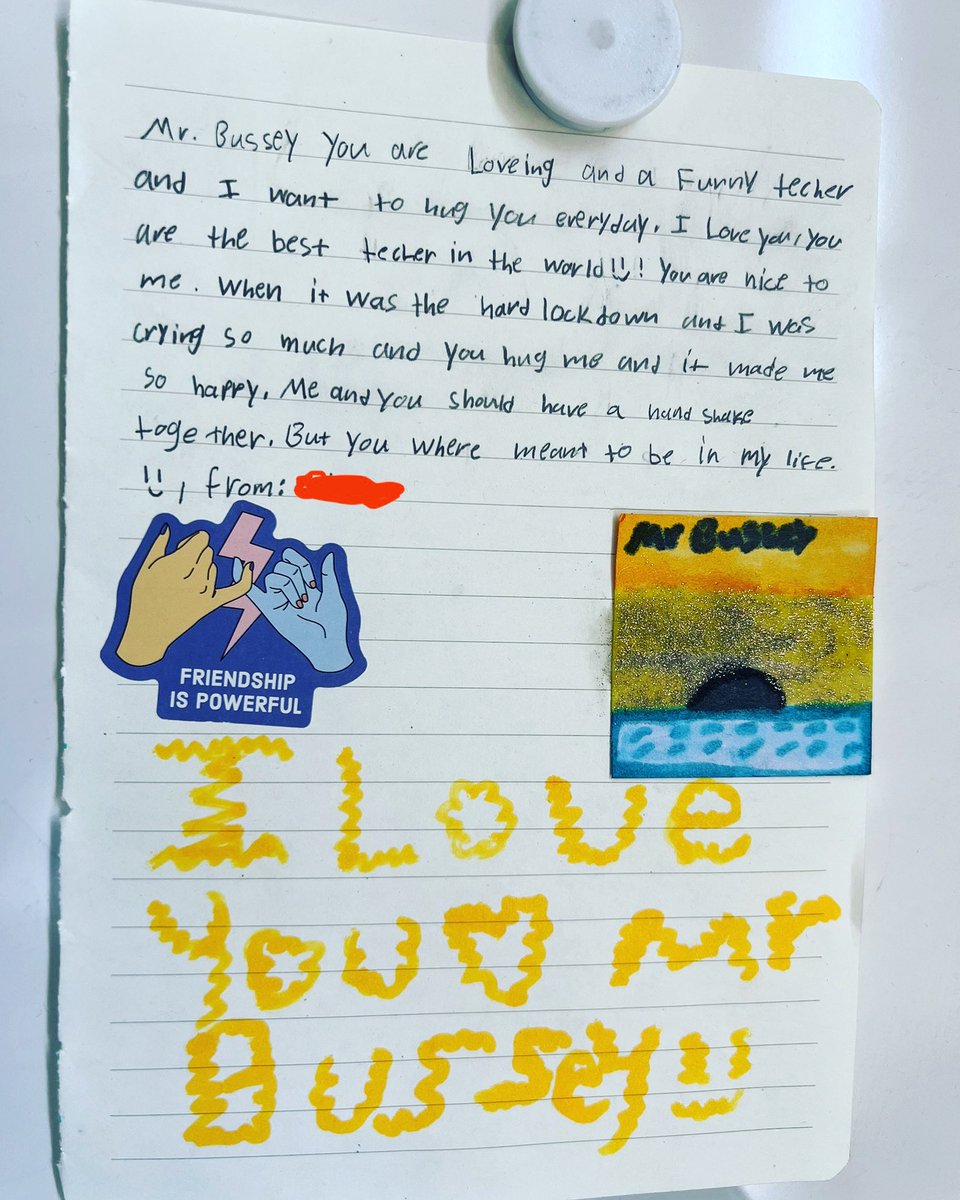 Mr. Bussey You are Loveing and a Funny techer
and I want to hug you everyday. I Love you, you
are the best techer in the world! You are nice to
me. When it was the hard lockdown and I was
crying so much and you hug me and it made me
so happy. Me and you should have a hand shake
together. But you where meant to be in my life.
, from:
FRIENDSHIP
IS POWERFUL
Mr Bussey
I Love
You Mr
Bussey